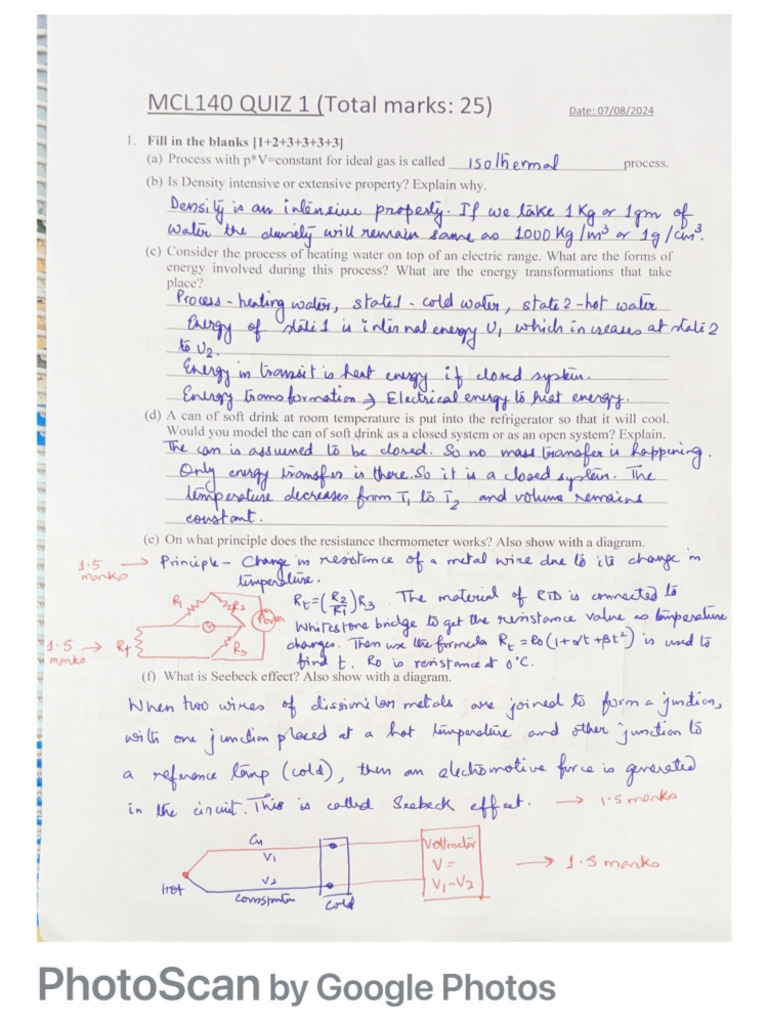 MCL140 QUIZ 1 (Total marks: 25)
Date: 07/08/2024
1. Fill in the blanks [1+2+3+3+3+3]
(a) Process with p*V=constant for ideal gas is called isothermal process.
(b) Is Density intensive or extensive property? Explain why.
Density is an intensive property. If we take 1 Kg or 1gm of
water the density will remain same as 1000 Kg/m³ or 1g/cm³.
(c) Consider the process of heating water on top of an electric range. What are the forms of
energy involved during this process? What are the energy transformations that take
place?
Process - heating water, state1 - cold water, state 2 - hot water
Energy of state 1 is internal energy U₁ which increases at state 2
to U₂.
Energy in transit is heat energy if closed system.
Energy transformation → Electrical energy to heat energy.
(d) A can of soft drink at room temperature is put into the refrigerator so that it will cool.
Would you model the can of soft drink as a closed system or as an open system? Explain.
The can is assumed to be closed. So no mass transfer is happening.
Only energy transfer is there. So it is a closed system. The
temperature decreases from T₁ to T₂ and volume remains
constant.
(e) On what principle does the resistance thermometer works? Also show with a diagram.
1.5 marks → Principle - Change in resistance of a metal wire due to its change in
temperature.
R1 R2 Power
Rt=(R2/R1)R3 The material of RTD is connected to
Whitestone bridge to get the resistance value as temperature
changes. Then use the formula Rt = Ro(1+αt+βt²) is used to
1.5 marks → Rt R3
find t. Ro is resistance at 0°C.
(f) What is Seebeck effect? Also show with a diagram.
When two wires of dissimilar metals are joined to form a junction,
with one junction placed at a hot temperature and other junction to
a reference temp (cold), then an electromotive force is generated
in the circuit. This is called Seebeck effect. → 1.5 marks
Cu
V1
Voltmeter
V =
V1-V2
→ 1.5 marks
V2
Hot
Cold
PhotoScan by Google Photos